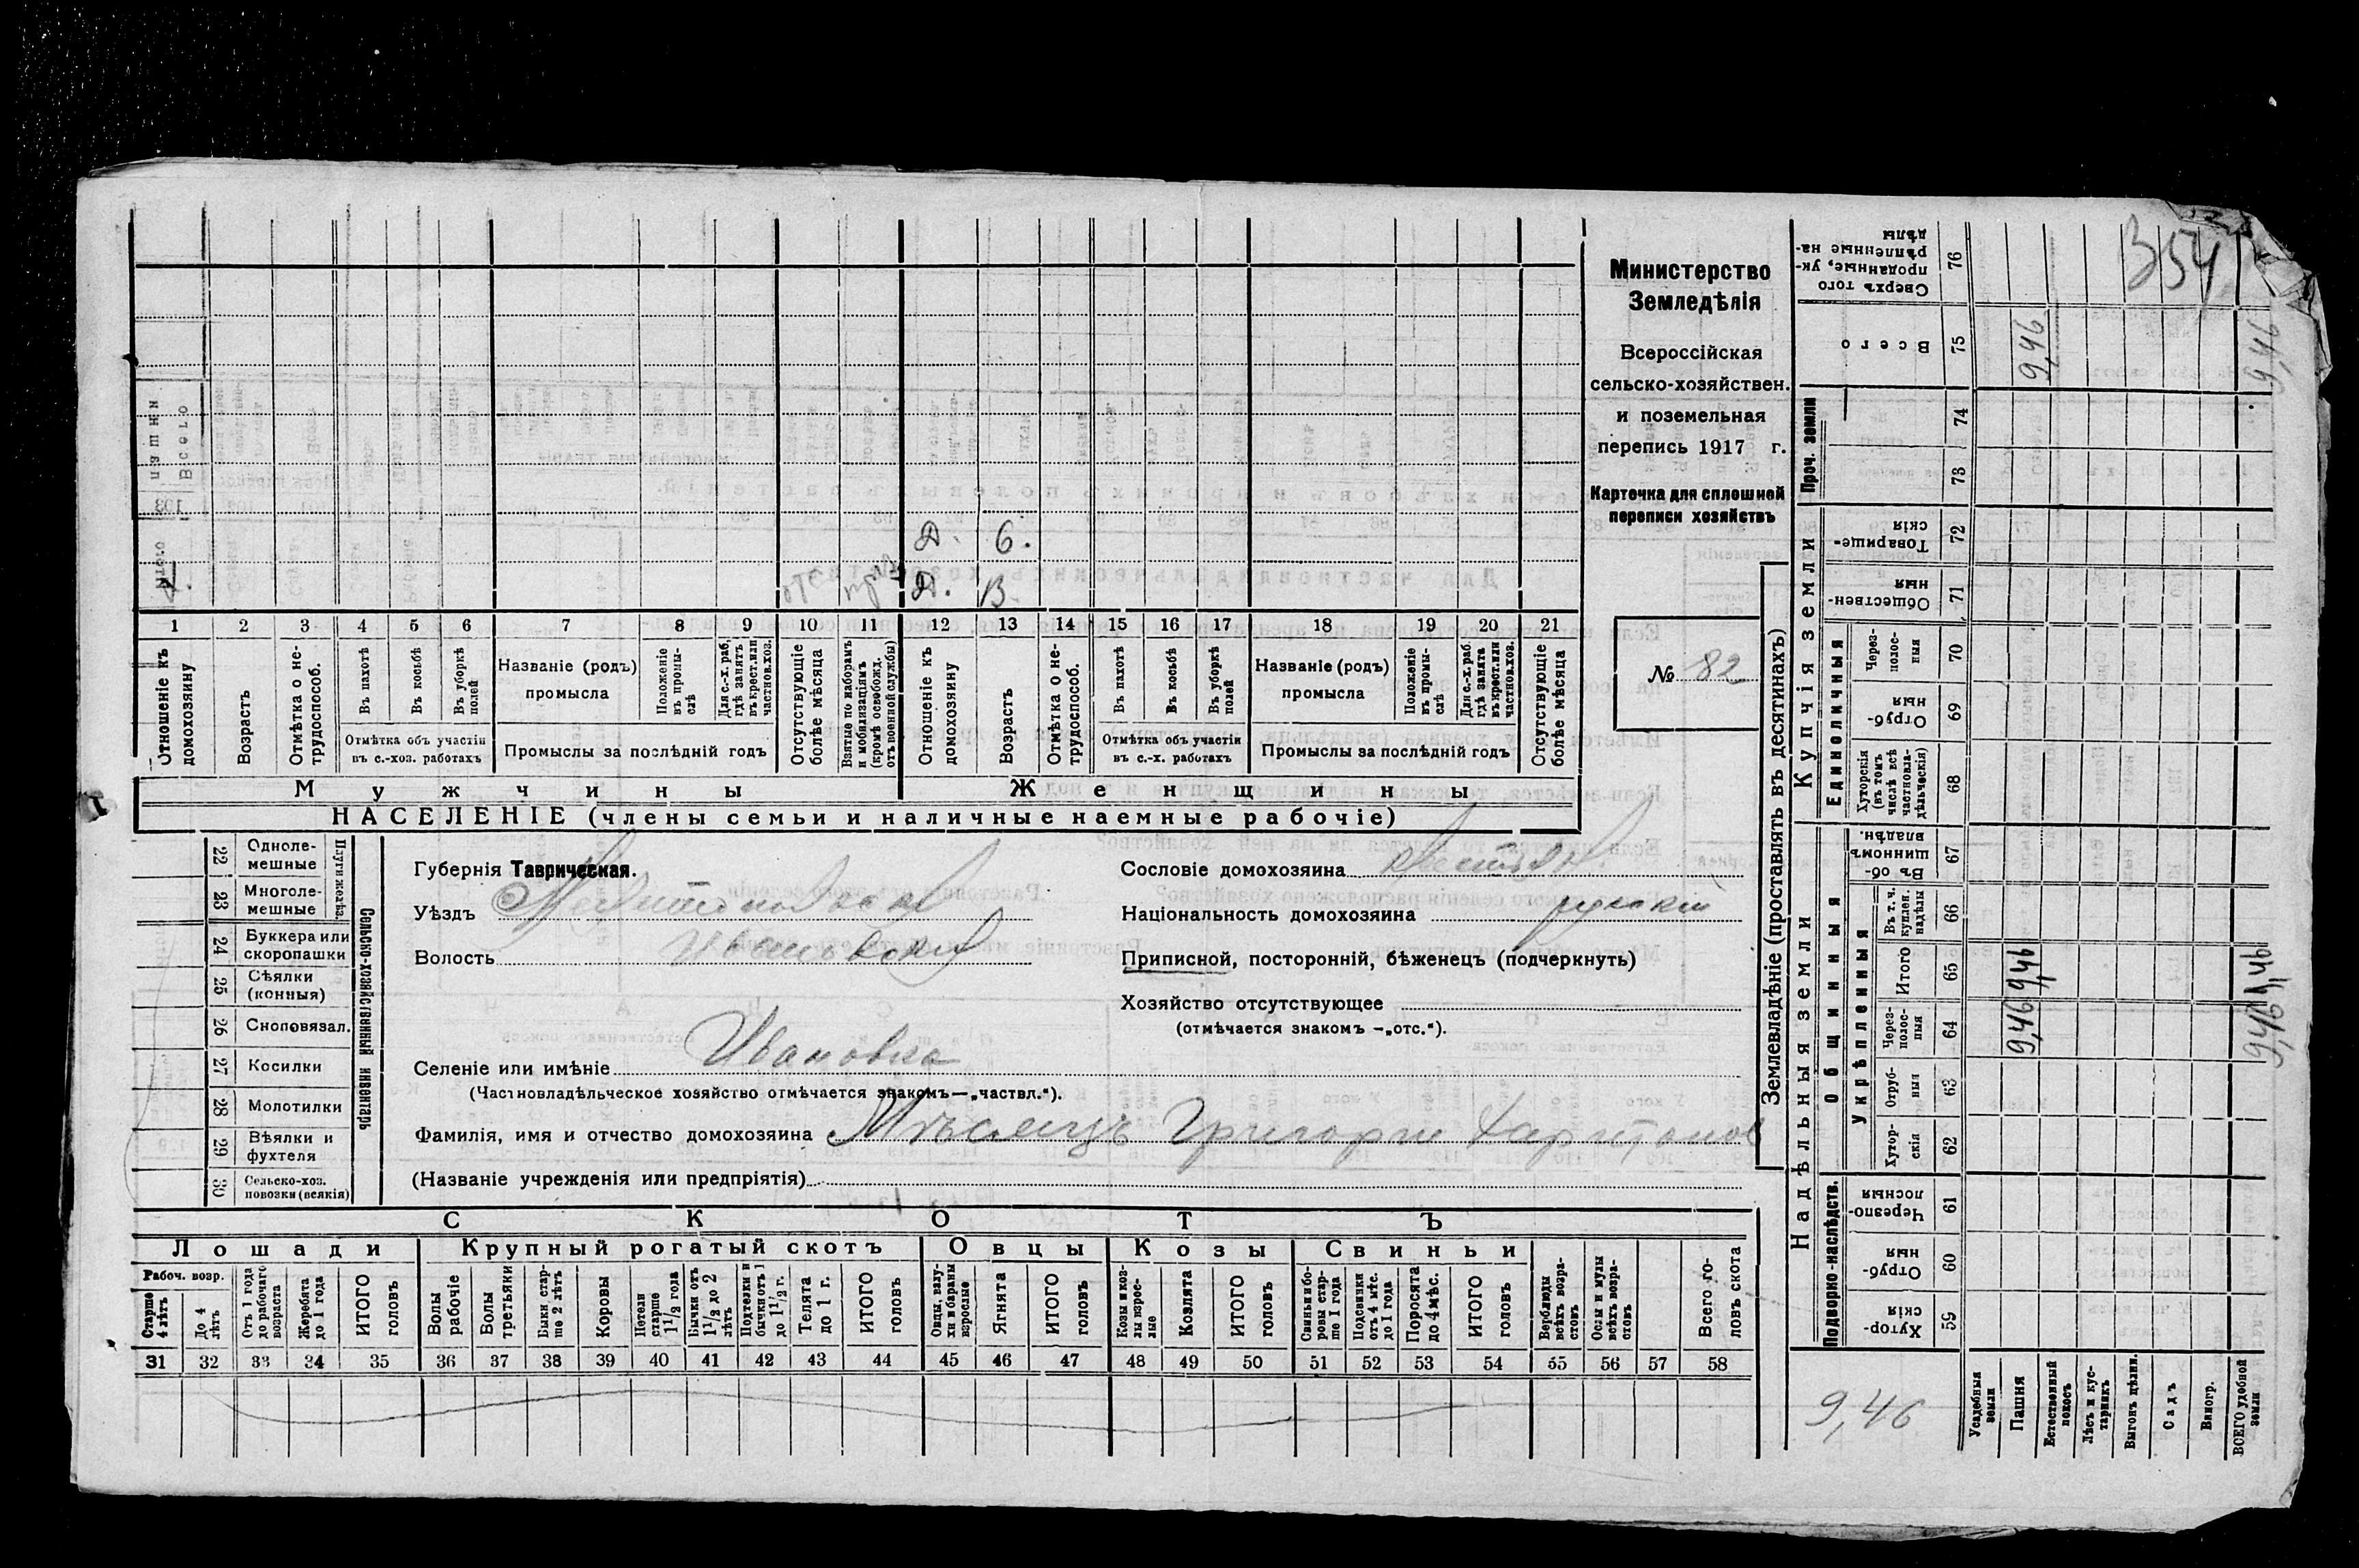 354
Министерство
Земледѣлія
Всероссійская
сельско-хозяйствен.
и поземельная
перепись 1917 г.
Карточка для сплошной
переписи хозяйствъ
№ 82
Д. 6.
Х. Д. 13
1 2 3 4 5 6 7 8 9 10 11 12 13 14 15 16 17 18 19 20 21
Отношеніе къ домохозяину
Возрастъ
Отмѣтка о нетрудоспособ.
Въ пахотѣ
Въ косьбѣ
Въ уборкѣ полей
Отмѣтка объ участіи въ с.-хоз. работахъ
Названіе (родъ) промысла
Положеніе въ промыслѣ
Для с.-х. раб. гдѣ занятъ въ крест. или частнов. хоз.
Промыслы за послѣдній годъ
Отсутствующіе болѣе мѣсяца
Взятые по наборамъ и мобилизаціямъ (кромѣ освобожд. отъ военной службы)
Отношеніе къ домохозяину
Возрастъ
Отмѣтка о нетрудоспособ.
Въ пахотѣ
Въ косьбѣ
Въ уборкѣ полей
Отмѣтка объ участіи въ с.-х. работахъ
Названіе (родъ) промысла
Положеніе въ промыслѣ
Для с.-х. раб. гдѣ занята въ крест. или частнов. хоз.
Промыслы за послѣдній годъ
Отсутствующіе болѣе мѣсяца
Мужчины Женщины
НАСЕЛЕНІЕ (члены семьи и наличные наемные рабочіе)
Сельско-хозяйственный инвентарь
22 Одноле-мешные
23 Многоле-мешные
24 Буккера или скоропашки
25 Сѣялки (конныя)
26 Сноповязал.
27 Косилки
28 Молотилки
29 Вѣялки и фухтеля
30 Сельско-хоз. повозки (всякія)
Губернія Таврическая.
Уѣздъ Мелитопольскій
Волость Ивановская
Селеніе или имѣніе Ивановка
(Частновладѣльческое хозяйство отмѣчается знакомъ—„частвл.“).
Фамилія, имя и отчество домохозяина Мѣсяецъ Григорги Харитонов
(Названіе учрежденія или предпріятія)
Сословіе домохозяина крестьян.
Національность домохозяина русскій
Приписной, посторонній, бѣженецъ (подчеркнуть)
Хозяйство отсутствующее
(отмѣчается знакомъ —„отс.“).
СКОТЪ
Лошади Крупный рогатый скотъ Овцы Козы Свиньи
Рабоч. возр.
Старше 4 лѣтъ
До 4 лѣтъ
Отъ 1 года до рабочаго возраста
Жеребята до 1 года
ИТОГО головъ
Волы рабочіе
Волы третьяки
Быки старше 2 лѣтъ
Коровы
Нетели старше 1 1/2 года
Бычки отъ 1 1/2 до 2 лѣтъ
Подтелки и бычки отъ 1 до 1 1/2 г.
Телята до 1 г.
ИТОГО головъ
Овцы, валухи и бараны взрослые
Ягнята
ИТОГО головъ
Козы и козлы взрослые
Козлята
ИТОГО головъ
Свиньи и боровы старше 1 года
Подсвинки отъ 4 мѣс. до 1 года
Поросята до 4 мѣс.
ИТОГО головъ
Верблюды всѣхъ возрастовъ
Ослы и мулы всѣхъ возрастовъ
Всего головъ скота
31 32 33 34 35 36 37 38 39 40 41 42 43 44 45 46 47 48 49 50 51 52 53 54 55 56 57 58
Землевладѣніе (проставлять въ десятинахъ)
Надѣльныя земли
Купчія земли
Проч. земли
Подворно-наслѣдств.
Общинныя
Укрѣпленныя
Единоличныя
Хуторскія 59
Отрубныя 60
Черезполосныя 61
Хуторскія 62
Отрубныя 63
Черезполосныя 64
Итого 65
Въ т. ч. куплен. надѣлы 66
Въ общинномъ владѣн. 67
Хуторскія (въ томъ числѣ всѣ частновладѣльческія) 68
Отрубныя 69
Черезполосныя 70
Общественныя 71
Товарищескія 72
73
74
Всего 75
Сверхъ того проданные, укрѣпленные надѣлы 76
Усадебныя земли
Пашня 9,46 9,46 9,46
Естественный покосъ
Лѣсъ и кустарникъ
Выгонъ цѣлин.
Садъ
Виногр.
ВСЕГО удобной земли 9,46 9,46 9,46
9,46